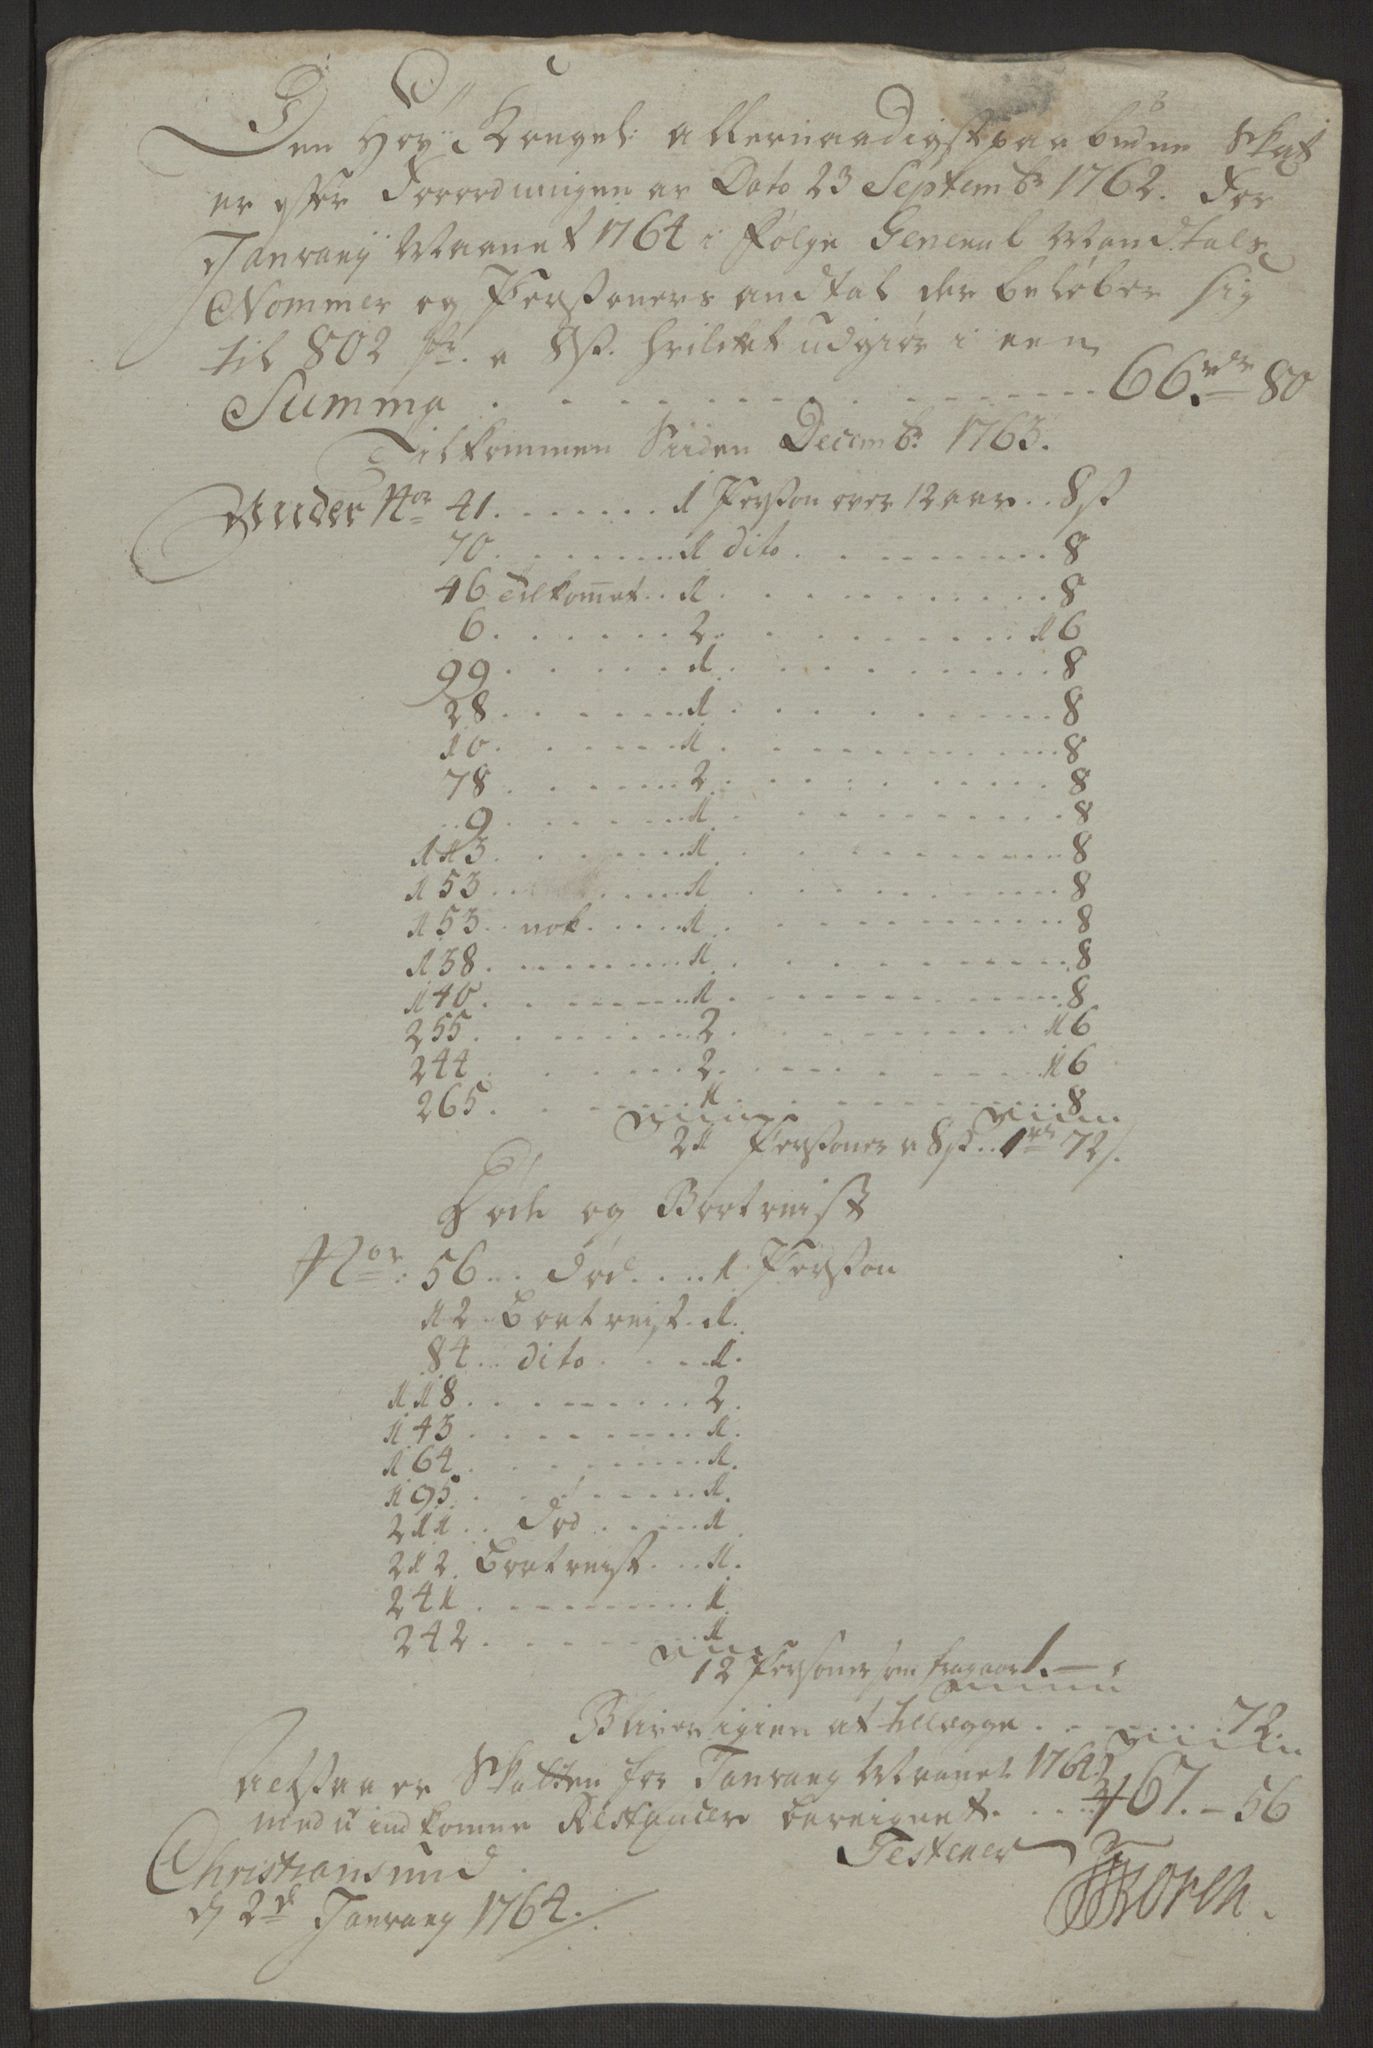 Den Høy Kongel: allernaadigst paabudne Skat
er efter Forordningen av Dato 23 Septembr 1762. For
Januarij Maanet 1764 i følge General Mandtals
Nommer og Perßoners andtal der beløber sig
til 802 st. a 8ß. hvilket udgiør i een
Summa . . . . . 66. rdr 80
Tilkommen Siiden Decembr. 1763.
Under Nor 41 . . . . . 1 Perßon over 12 aar . . 8ß
70 . . . . . 1 dito . . . . . 8
46 Tilkommet . . 1 . . . . . 8
6 . . . . . 2 . . . . . 16
99 . . . . . 1 . . . . . 8
28 . . . . . 1 . . . . . 8
10 . . . . . 1 . . . . . 8
78 . . . . . 2 . . . . . 8
9 . . . . . 1 . . . . . 8
113 . . . . . 1 . . . . . 8
153 . . . . . 1 . . . . . 8
153 . . nok . . . . 1 . . . . . 8
138 . . . . . 1 . . . . . 8
140 . . . . . 1 . . . . . 8
255 . . . . . 2 . . . . . 16
244 . . . . . 2 . . . . . 16
265 . . . . . 1 . . . . . 8
21 Perßoner a 8ß . . 1 rdr 72ß.
Døde og Bortreist
Nor: 56 . . . død . . . . 1 Perßon
12 . Bortreist . 1.
84 . . dito . . . . 1.
118 . . . . . 2.
143 . . . . . 1.
164 . . . . . 1.
195 . . . . . 1.
211 . . død . . . . 1
212. Bortreist . . . 1.
241 . . . . . 1.
242 . . . . . 1
12 Personer som fragaar 1. — :
Bliver igien at tillegge . . . . . 72.
Altsaa er Skatten for Januarij Maanet 1764
med u indkomne Restancer bereignet . . . . 467. — 56
Christiansund
d 2d Januarij 1764.
Testerer